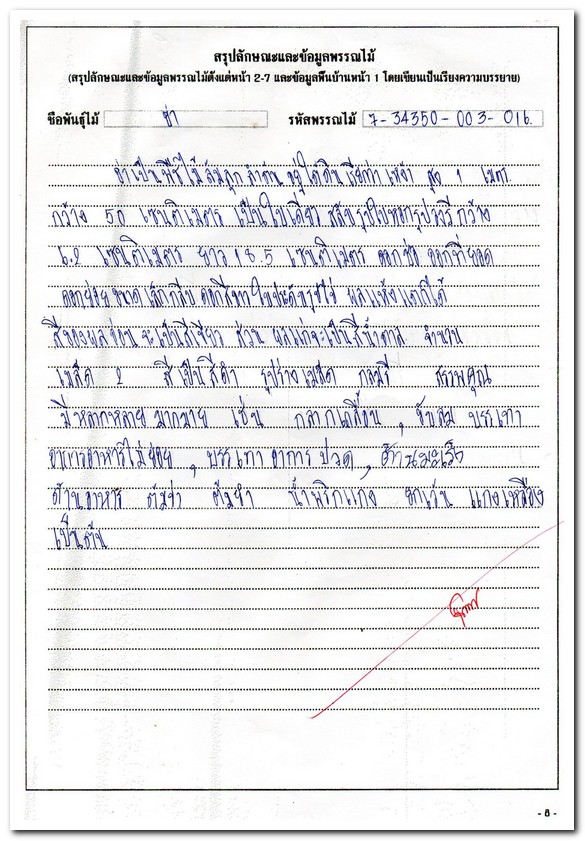 สรุปลักษณะและข้อมูลพรรณไม้
(สรุปลักษณะและข้อมูลพรรณไม้ตั้งแต่หน้า 2-7 และข้อมูลพื้นบ้านหน้า 1 โดยเขียนเป็นเรียงความบรรยาย)
ชื่อพันธุ์ไม้ ข่า รหัสพรรณไม้ 7-34350-003-016
ข่าเป็นพืชไม้ล้มลุก ลำต้น อยู่ใต้ดิน เรียกว่า เหง้า สูง 1 เมตร
กว้าง 50 เซนติเมตร เป็นใบเดี่ยว สลับ รูปใบหอก รูปวงรี กว้าง
6.2 เซนติเมตร ยาว 18.5 เซนติเมตร ดอกช่อ ออกที่ยอด
ดอกย่อย ขนาดเล็ก กลีบดอกสีขาว ใบประดับรูปไข่ ผลแห้งแตกได้
สีของผลอ่อน จะเป็นสีเขียว ส่วน ผลแก่จะเป็นสีน้ำตาล จำนวน
เมล็ด 2 สีเป็นสีดำ รูปร่างเมล็ด กลมรี สรรพคุณ
มีหลากหลาย มากมาย เช่น กลากเกลื้อน , ขับลม บรรเทา
อาการอาหารไม่ย่อย , บรรเทาอาการปวด , ต้านมะเร็ง
ด้านอาหาร ต้มข่า ต้มยำ น้ำพริกแกง ยกเว้น แกงเหลือง
เป็นต้น
- 8 -